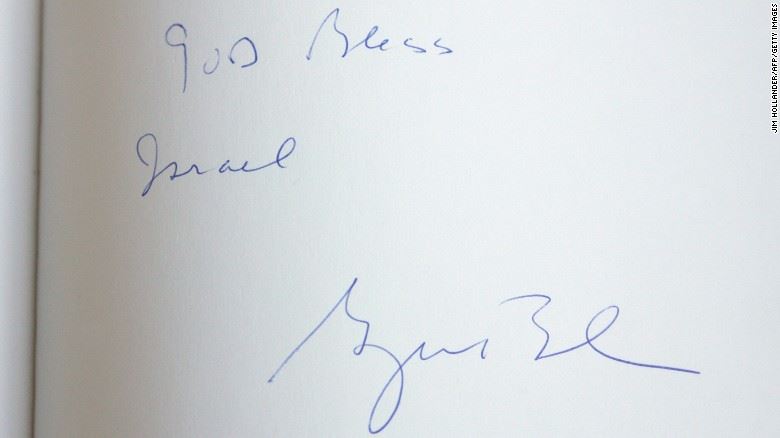 God Bless
Israel
JIM HOLLANDER/AFP/GETTY IMAGES